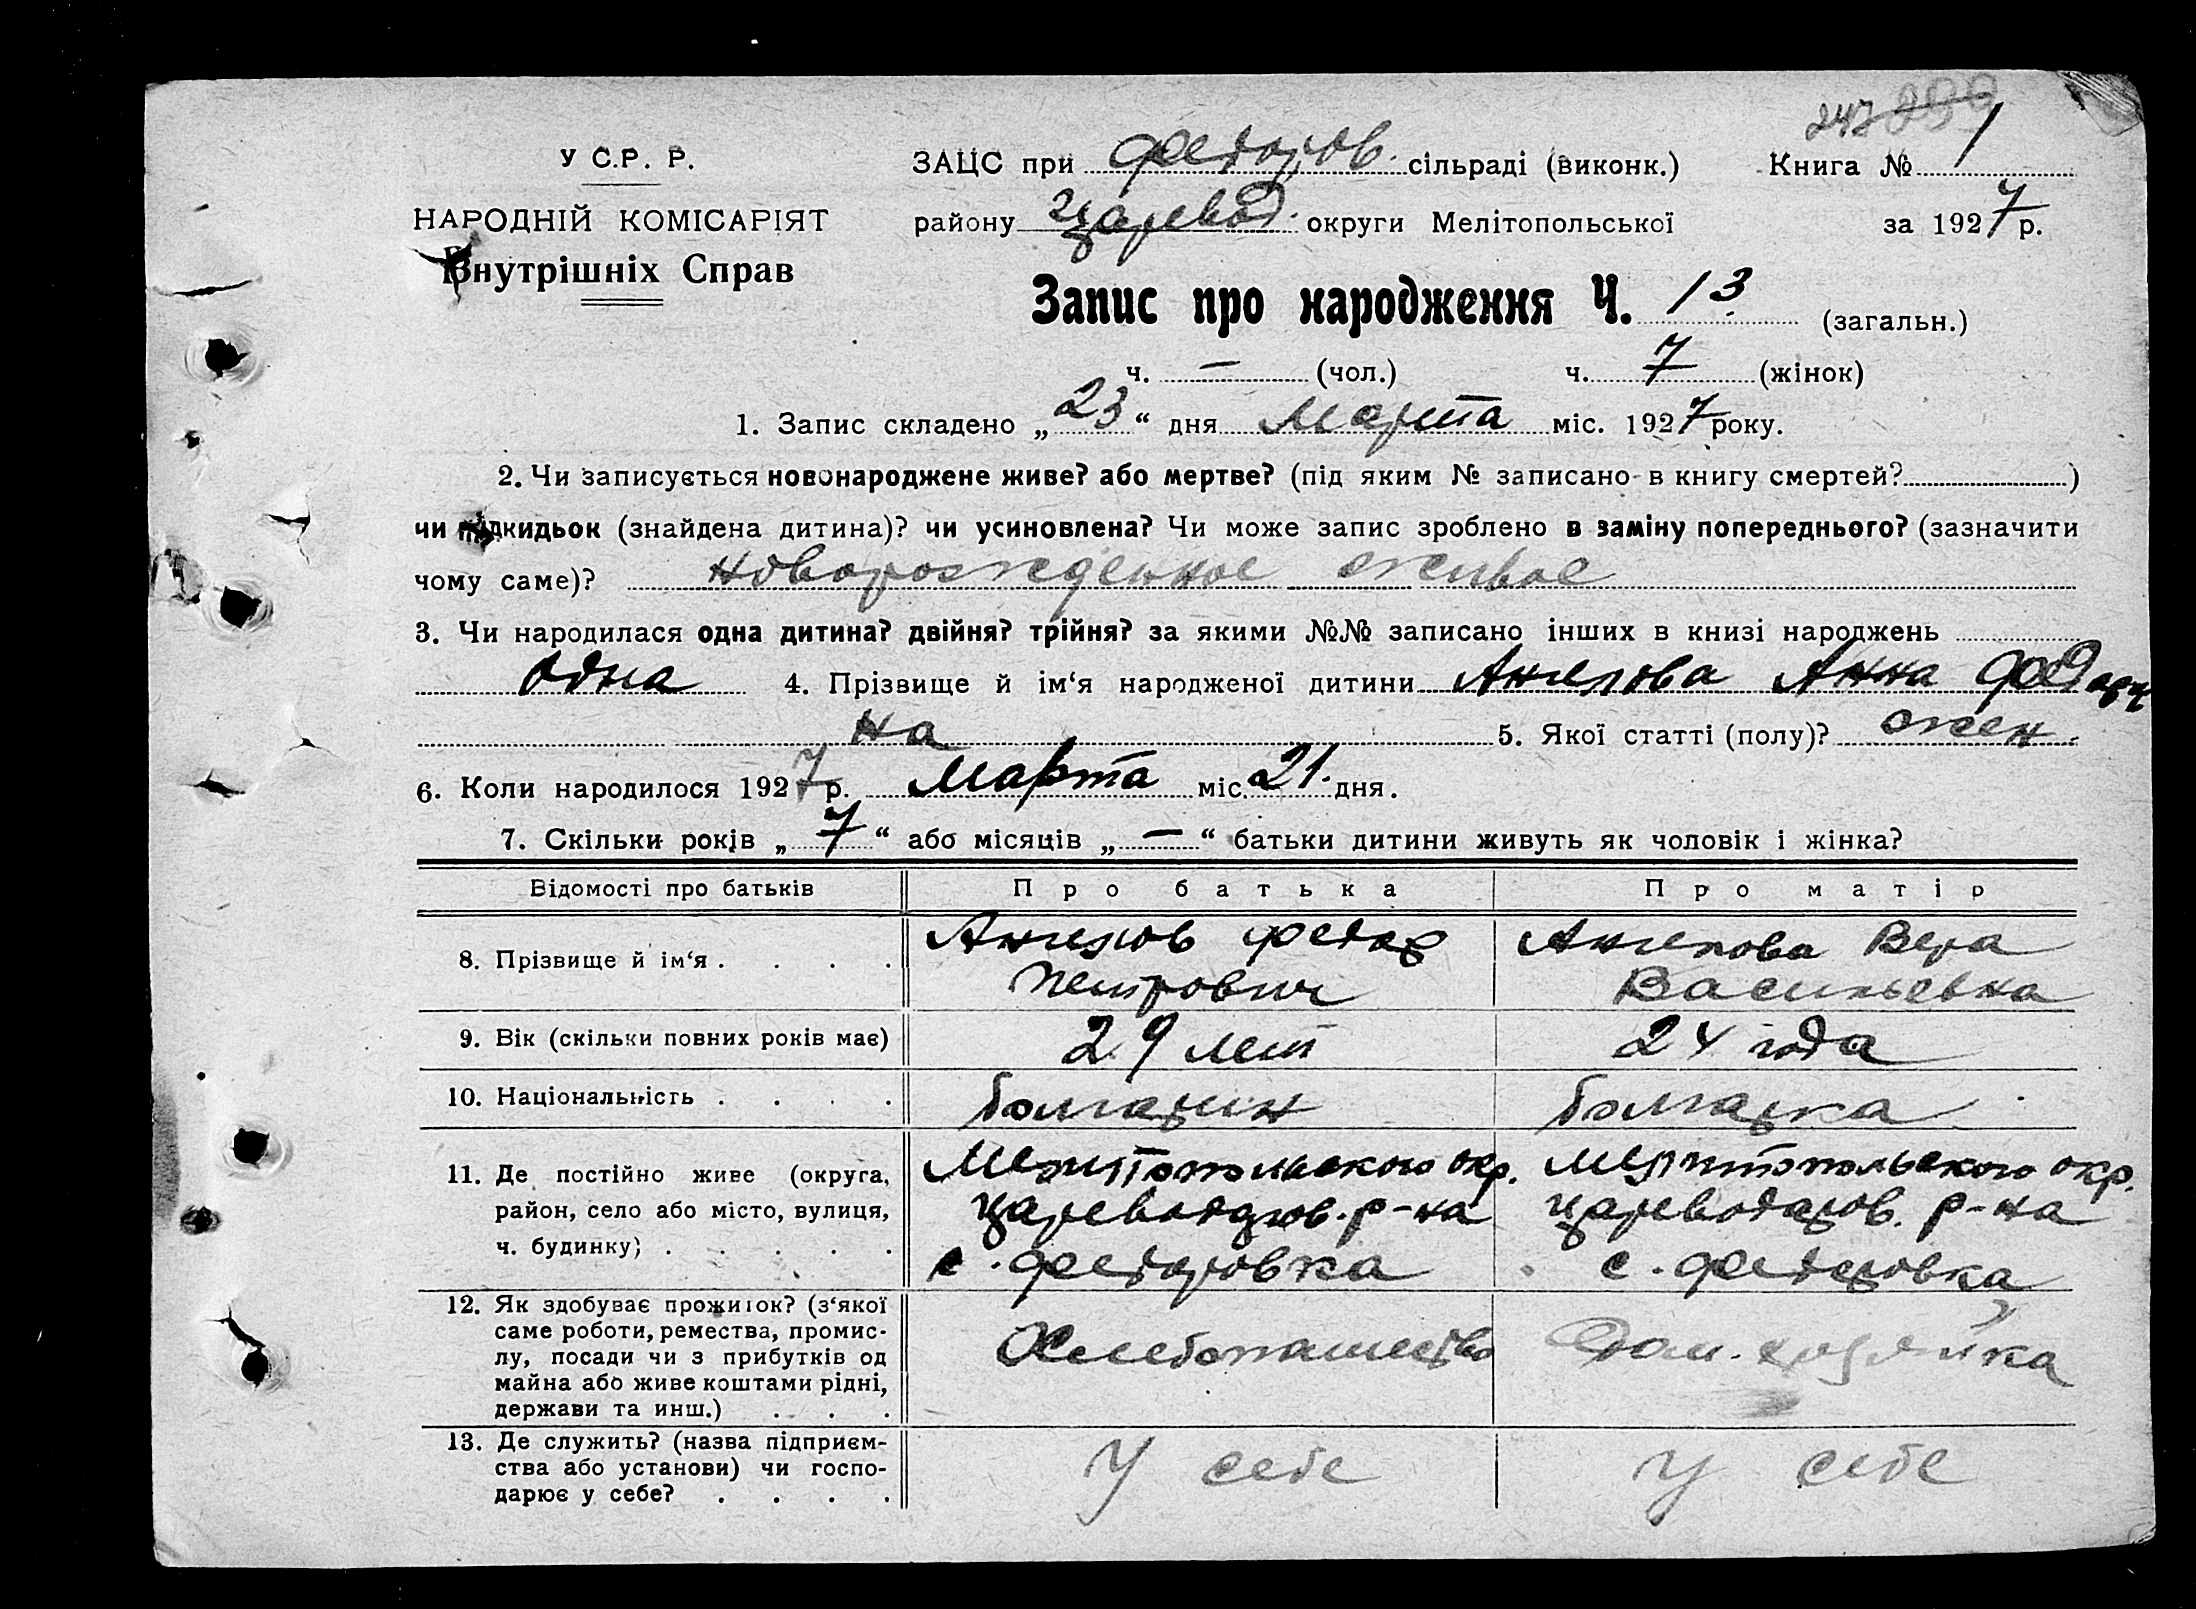 247 299
У С.Р. Р.
ЗАЦС при Федоров. сільраді (виконк.) Книга № 1
НАРОДНІЙ КОМІСАРІЯТ
району Царевод. округи Мелітопольської за 1927 р.
Внутрішніх Справ
Запис про народження Ч. 13 (загальн.)
ч. — (чол.) ч. 7 (жінок)
1. Запис складено „23“ дня Марта міс. 1927 року.
2. Чи записується новонароджене живе? або мертве? (під яким № записано в книгу смертей? )
чи підкидьок (знайдена дитина)? чи усиновлена? Чи може запис зроблено в заміну попереднього? (зазначити
чому саме)? новорожденное живое
3. Чи народилася одна дитина? двійня? трійня? за якими №№ записано інших в книзі народжень
одна 4. Прізвище й ім‘я народженої дитини Ангелова Анна Федоров
на 5. Якої статті (полу)? жен.
6. Коли народилося 1927 р. Марта міс. 21 дня.
7. Скільки років „7“ або місяців „—“ батьки дитини живуть як чоловік і жінка?
Відомості про батьків Про батька Про матір
8. Прізвище й ім‘я . . . . Ангелов Федор Ангелова Вера
Петрович Васильевна
9. Вік (скільки повних років має) 29 лет 24 года
10. Національність . . . . болгарин болгарка
11. Де постійно живе (округа, Мелитопольского окр. Мелитопольского окр.
район, село або місто, вулиця, Цареводаров. р-на Цареводаров. р-на
ч. будинку) . . . . . с. Федоровка с. Федоровка
12. Як здобуває прожиток? (з‘якої
саме роботи, ремества, промис-
лу, посади чи з прибутків од Хлебопашество Дом. хозяйка
майна або живе коштами рідні,
держави та инш.) . . .
13. Де служить? (назва підприєм-
ства або установи) чи госпо- У себе У себе
дарює у себе? . . . .